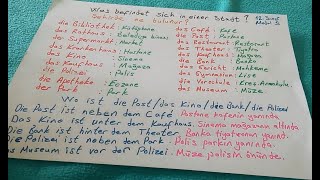 Was befindet sich in einer Stadt?
Şehirde ne bulunur?
die Bibliothek : Kütüphane
das Rathaus : Belediye binası
der Supermarkt : Market
das Krankenhaus : Hastane
das Kino : Sinema
das Kaufhaus : Mağaza
die Polizei : Polis
die Apotheke : Eczane
der Park : Park
das Café : Kafe
die Post : Postane
das Restaurant : Restorant
das Theater : Tiyatro
das Kaufhaus : Mağaza
die Bank : Banka
das Gericht : Mahkeme
das Gymnasium : Lise
die Vorschule : Kreş, Anaokulu
das Museum : Müze
Wo ist die Post/das Kino/die Bank/die Polizei
Die Post ist neben dem Café. Postane kafenin yanında.
Das Kino ist unter dem Kaufhaus. Sinema mağazanın altında
Die Bank ist hinter dem Theater. Banka tiyatronun yanında.
Die Polizei ist neben dem Park. Polis parkın yanında.
Das Museum ist vor der Polizei. Müze polisin önünde.